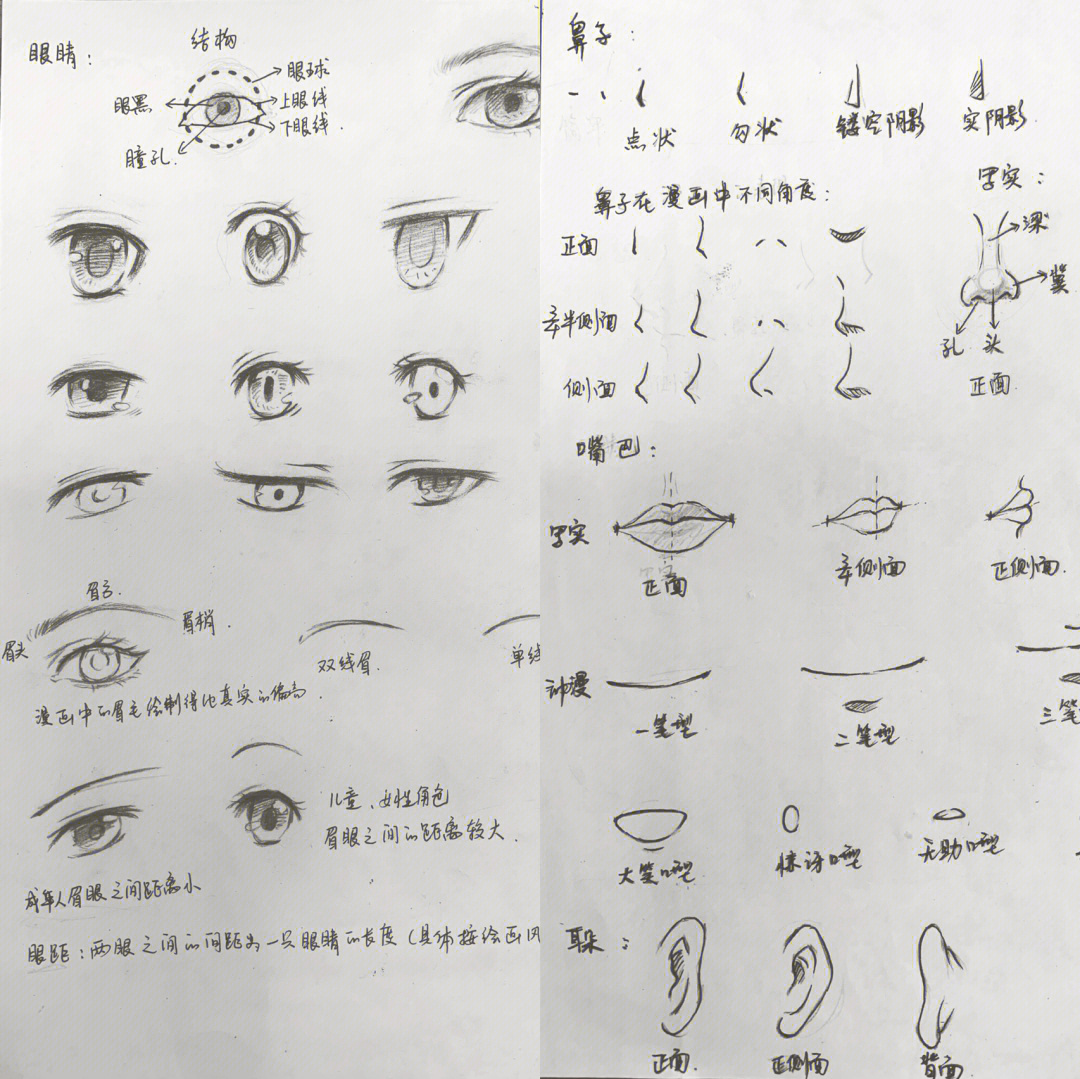 眼睛：
结构
眼球
眼黑
上眼线
下眼线.
瞳孔.
眉头
眉梢.
双线眉.
单线
漫画中的眉毛绘制得比真实的偏高.
儿童、女性角色
眉眼之间的距离较大.
成年人眉眼之间距离小
眼距：两眼之间的间距为一只眼睛的长度（具体按绘画风
鼻子：
点状
勾状
镂空阴影
实阴影
写实：
鼻子在漫画中不同角度：
正面
半侧面
侧面
翼
孔
头
正面.
嘴巴：
写实
正面
半侧面
正侧面.
动漫
一笔型
二笔型
三笔
大笑口型
惊讶口型
无助口型
耳朵：
正面.
正侧面
背面